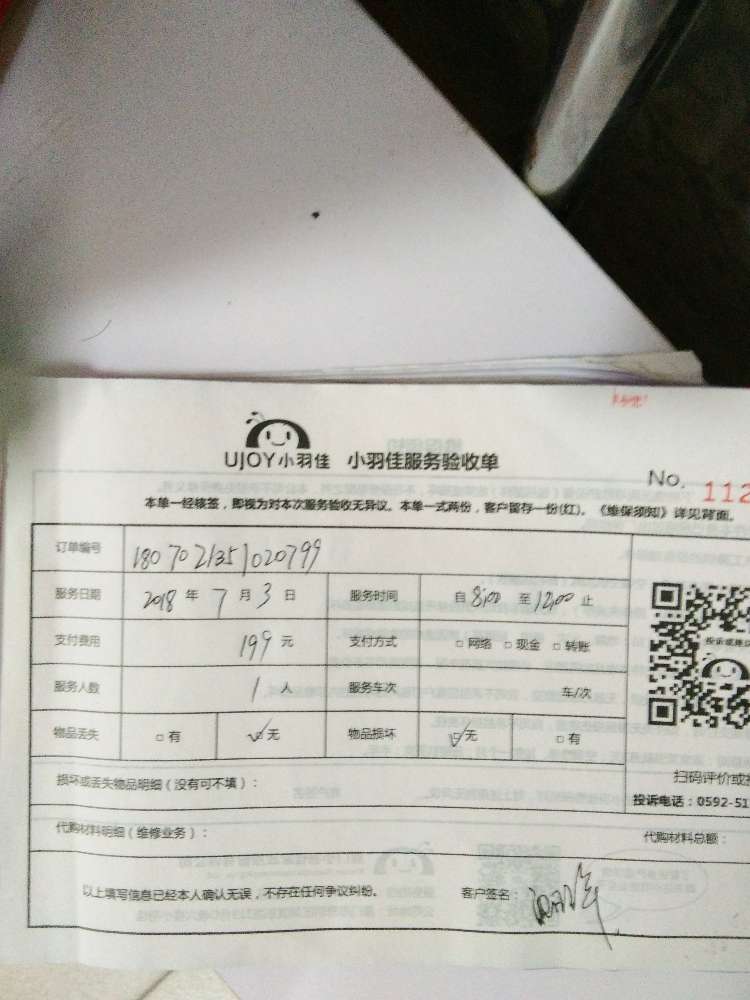 UJOY小羽佳 小羽佳服务验收单
No. 112
本单一经核签，即视为对本次服务验收无异议。本单一式两份，客户留存一份(红)。《维保须知》详见背面。
订单编号 1807021351020799
服务日期 2018 年 7 月 3 日 服务时间 自 8:00 至 12:00 止
支付费用 199 元 支付方式 □ 网络 □ 现金 □ 转账
服务人数 1 人 服务车次 车/次
物品丢失 □ 有 ☑ 无 物品损坏 ☑ 无 □ 有
扫码评价或
损坏或丢失物品明细（没有可不填）：
投诉电话：0592-51
代购材料明细（维修业务）： 代购材料总额：
以上填写信息已经本人确认无误，不存在任何争议纠纷。 客户签名：